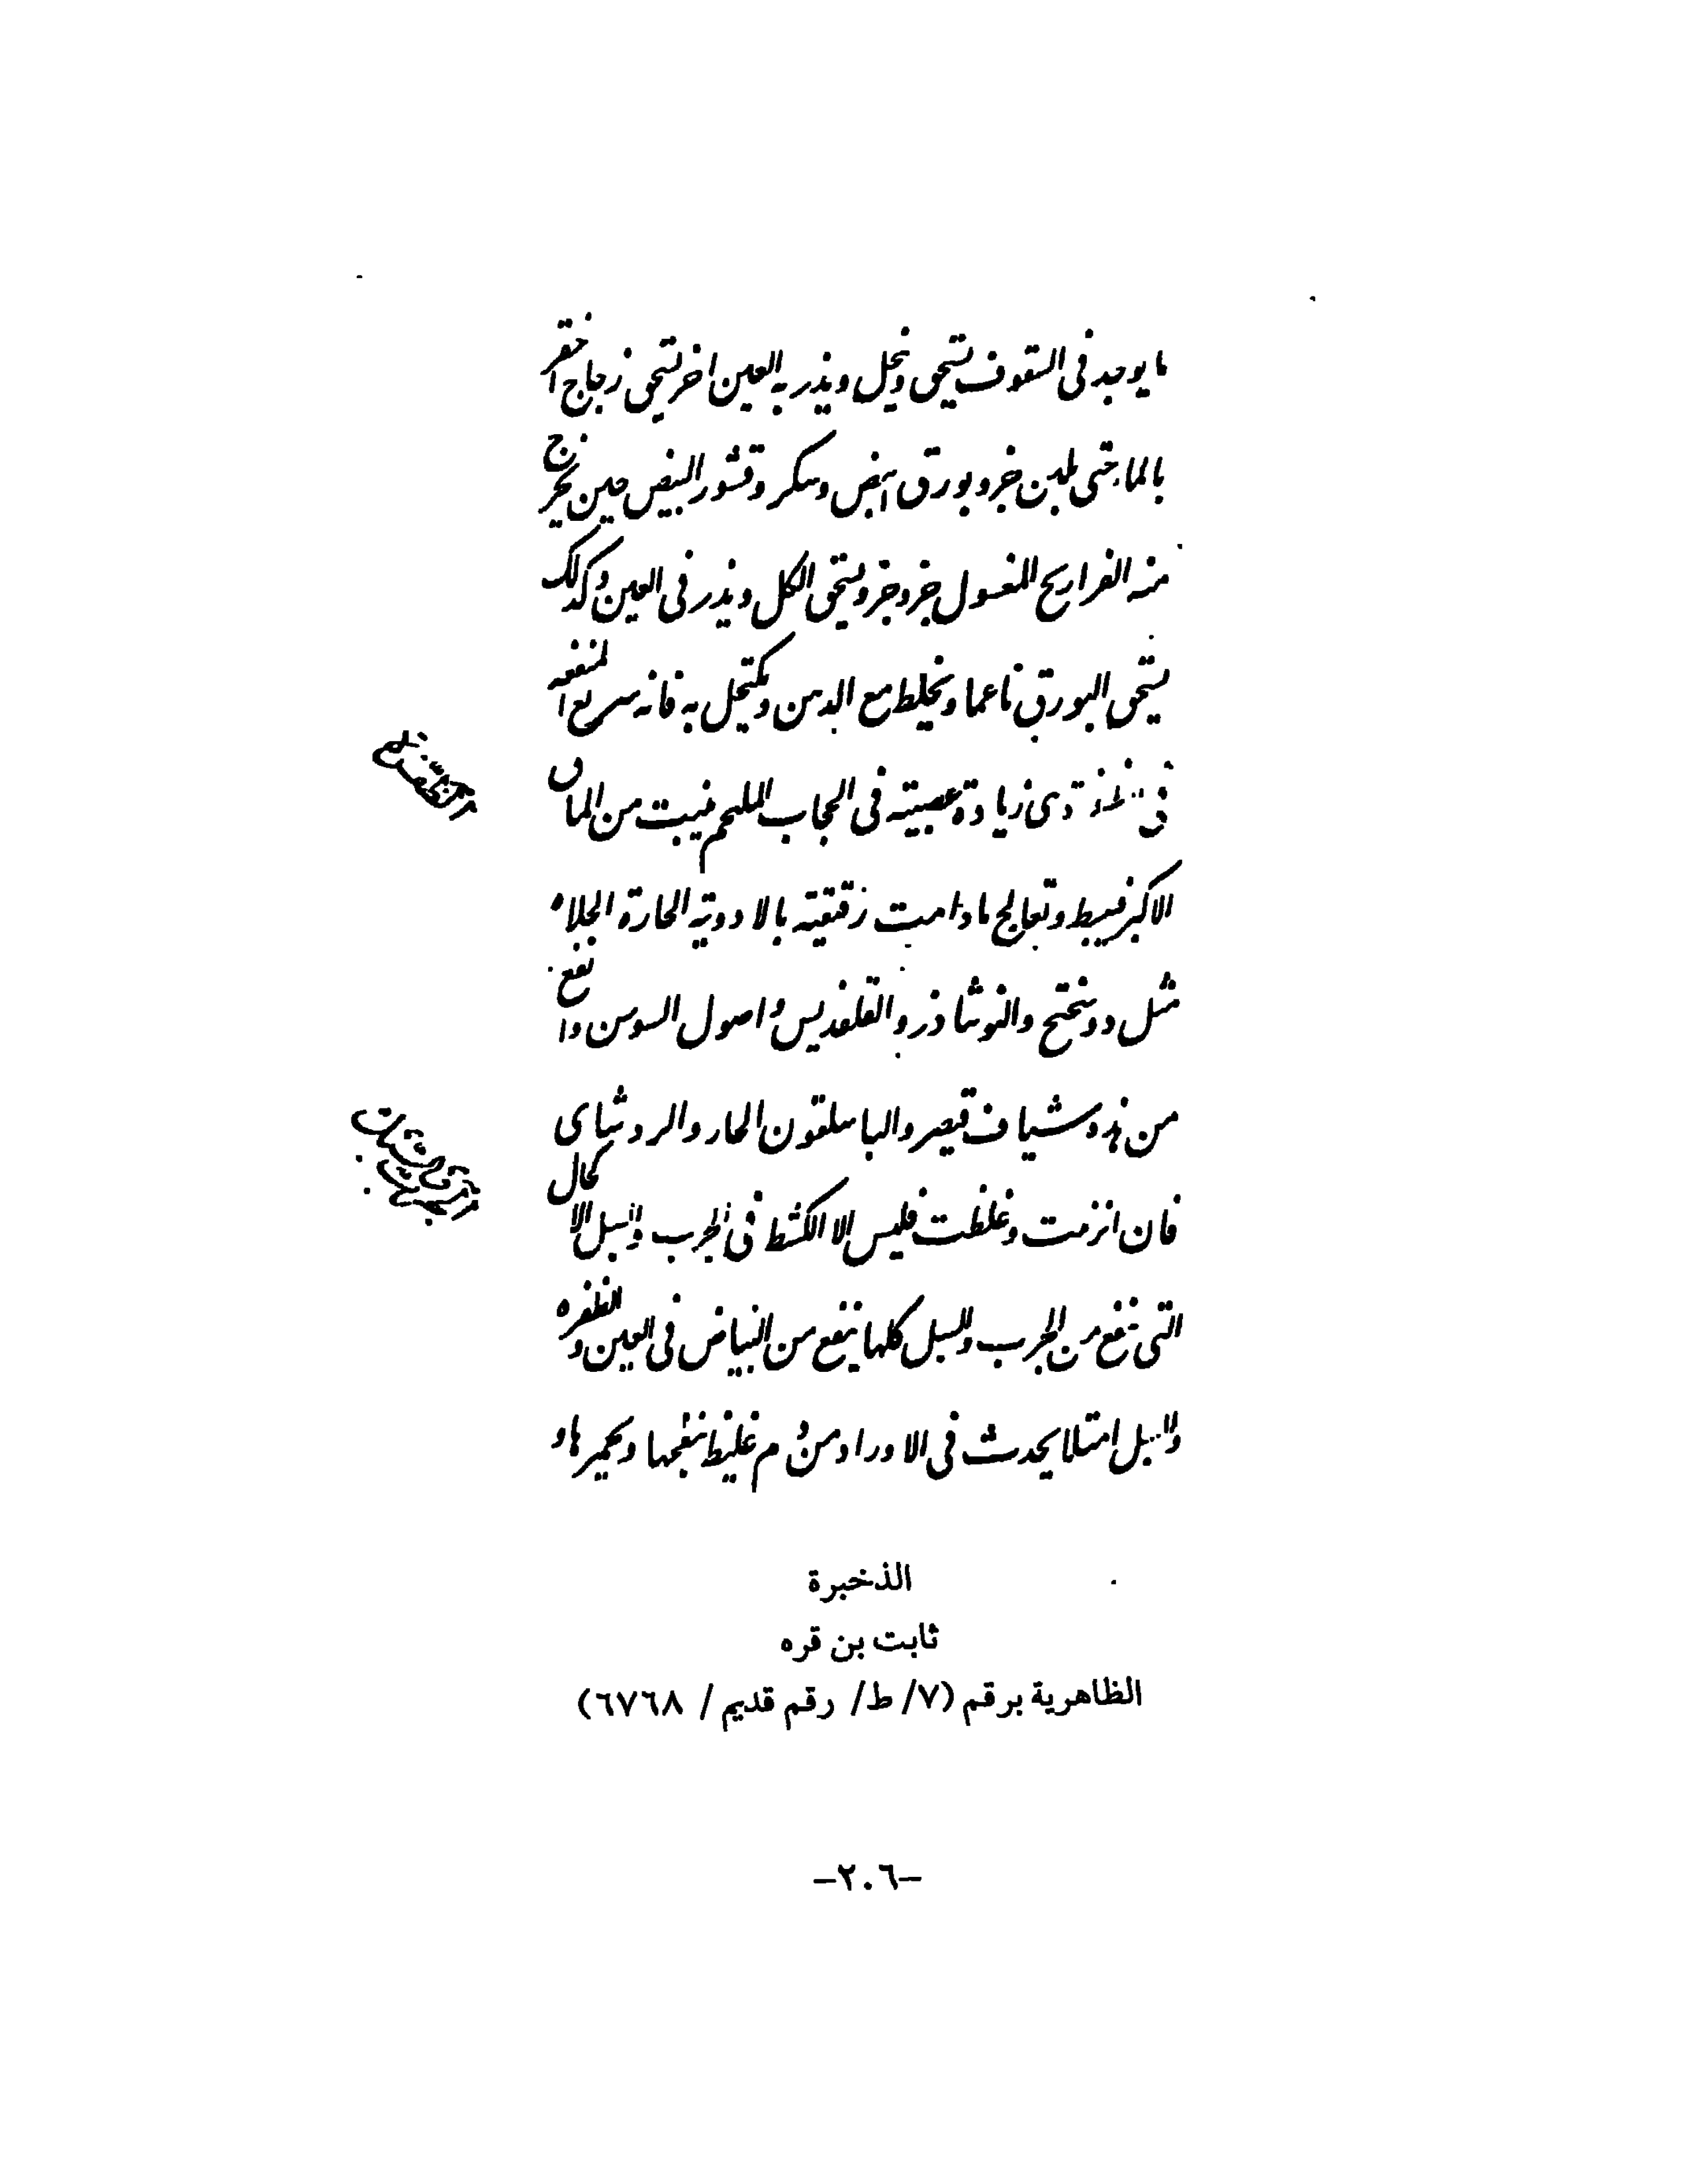 ما يوجد فى السقوف يسحق وينخل ويذر به العين اخر يسحق زجاج اخضر
بالماء حتى يلين جزو بورق ابيض وسكر وقشور البيض حين يخرج
منه الفراريح المغسول جزو جزو يسحق الكل ويذر فى العين وكذلك
يسحق البورق ناعما ويخلط مع الدهن ويكتحل به فانه سريع المنفعه
فى زيادة عصبية فى الحجاب الملتحم ينبت من الماق
الاكبر فيبسط وتعالج ما دامت رقيقة بالادوية الحارة الجلاه
مثل روسختج والنوشاذر والقلقديس واصول السوسن وانفع
من هذه شياف قيصر والباسلقون الحار والروشناى
فان ازمنت وغلظت فليس الا الكشط فى الجرب والسبل الاكحال
التى تنفع من الجرب والسبل كلها ينفع من البياض فى العين والظفره
والسبل امتلا يحدث فى الاوراد من دم غليظ ينفخها ويحمرها و
الذخيرة
ثابت بن قره
الظاهرية برقم (٧/ ط/ رقم قديم/ ٦٧٦٨)
-٢٠٦-